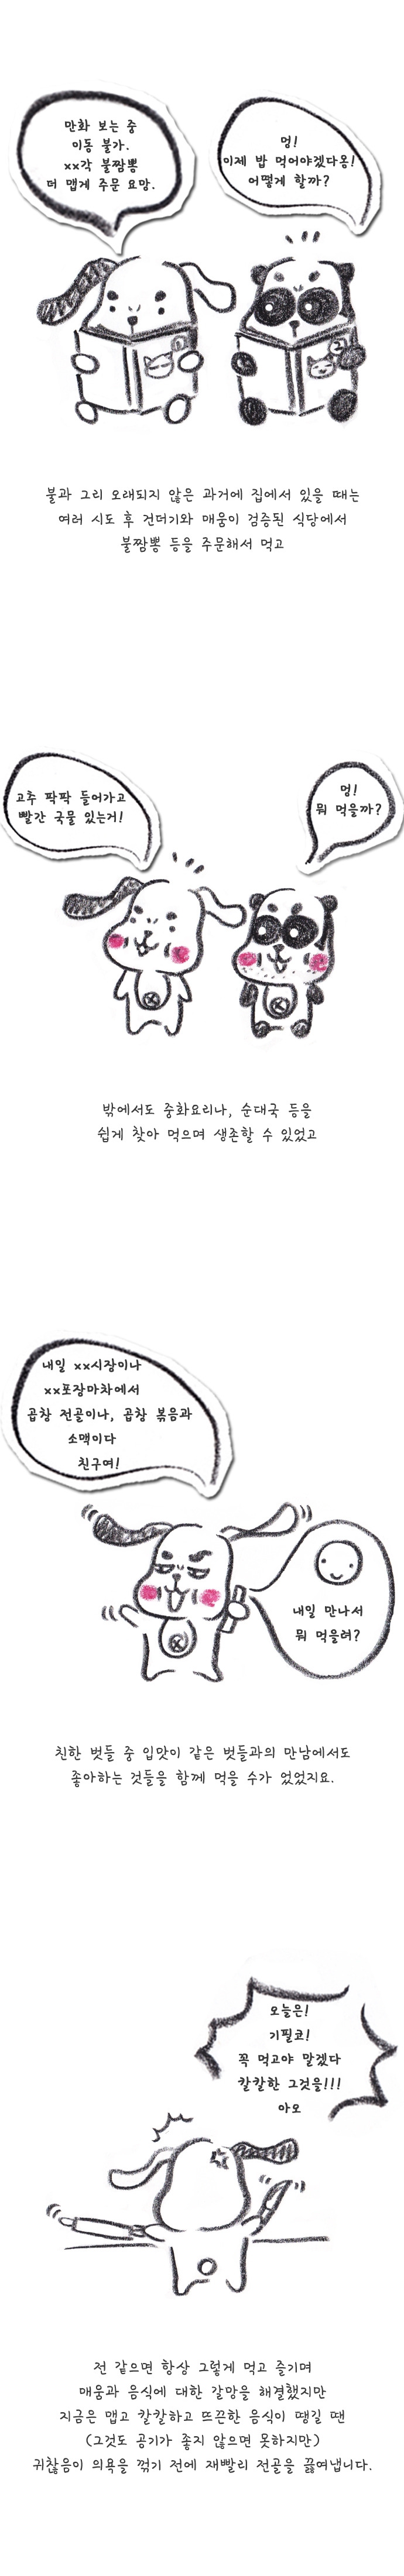 만화 보는 중
이동 불가.
××각 불짬뽕
더 맵게 주문 요망.
멍!
이제 밥 먹어야겠다옹!
어떻게 할까?
불과 그리 오래되지 않은 과거에 집에서 있을 때는
여러 시도 후 건더기와 매움이 검증된 식당에서
불짬뽕 등을 주문해서 먹고
고추 팍팍 들어가고
빨간 국물 있는거!
멍!
뭐 먹을까?
밖에서도 중화요리나, 순대국 등을
쉽게 찾아 먹으며 생존할 수 있었고
내일 ××시장이나
××포장마차에서
곱창 전골이나, 곱창 볶음과
소맥이다
친구여!
내일 만나서
뭐 먹을려?
친한 벗들 중 입맛이 같은 벗들과의 만남에서도
좋아하는 것들을 함께 먹을 수가 었었지요.
오늘은!
기필코!
꼭 먹고야 말겠다
칼칼한 그것을!!!
아오
전 같으면 항상 그렇게 먹고 즐기며
매움과 음식에 대한 갈망을 해결했지만
지금은 맵고 칼칼하고 뜨끈한 음식이 땡길 땐
(그것도 공기가 좋지 않으면 못하지만)
귀찮음이 의욕을 꺾기 전에 재빨리 전골을 끓여냅니다.